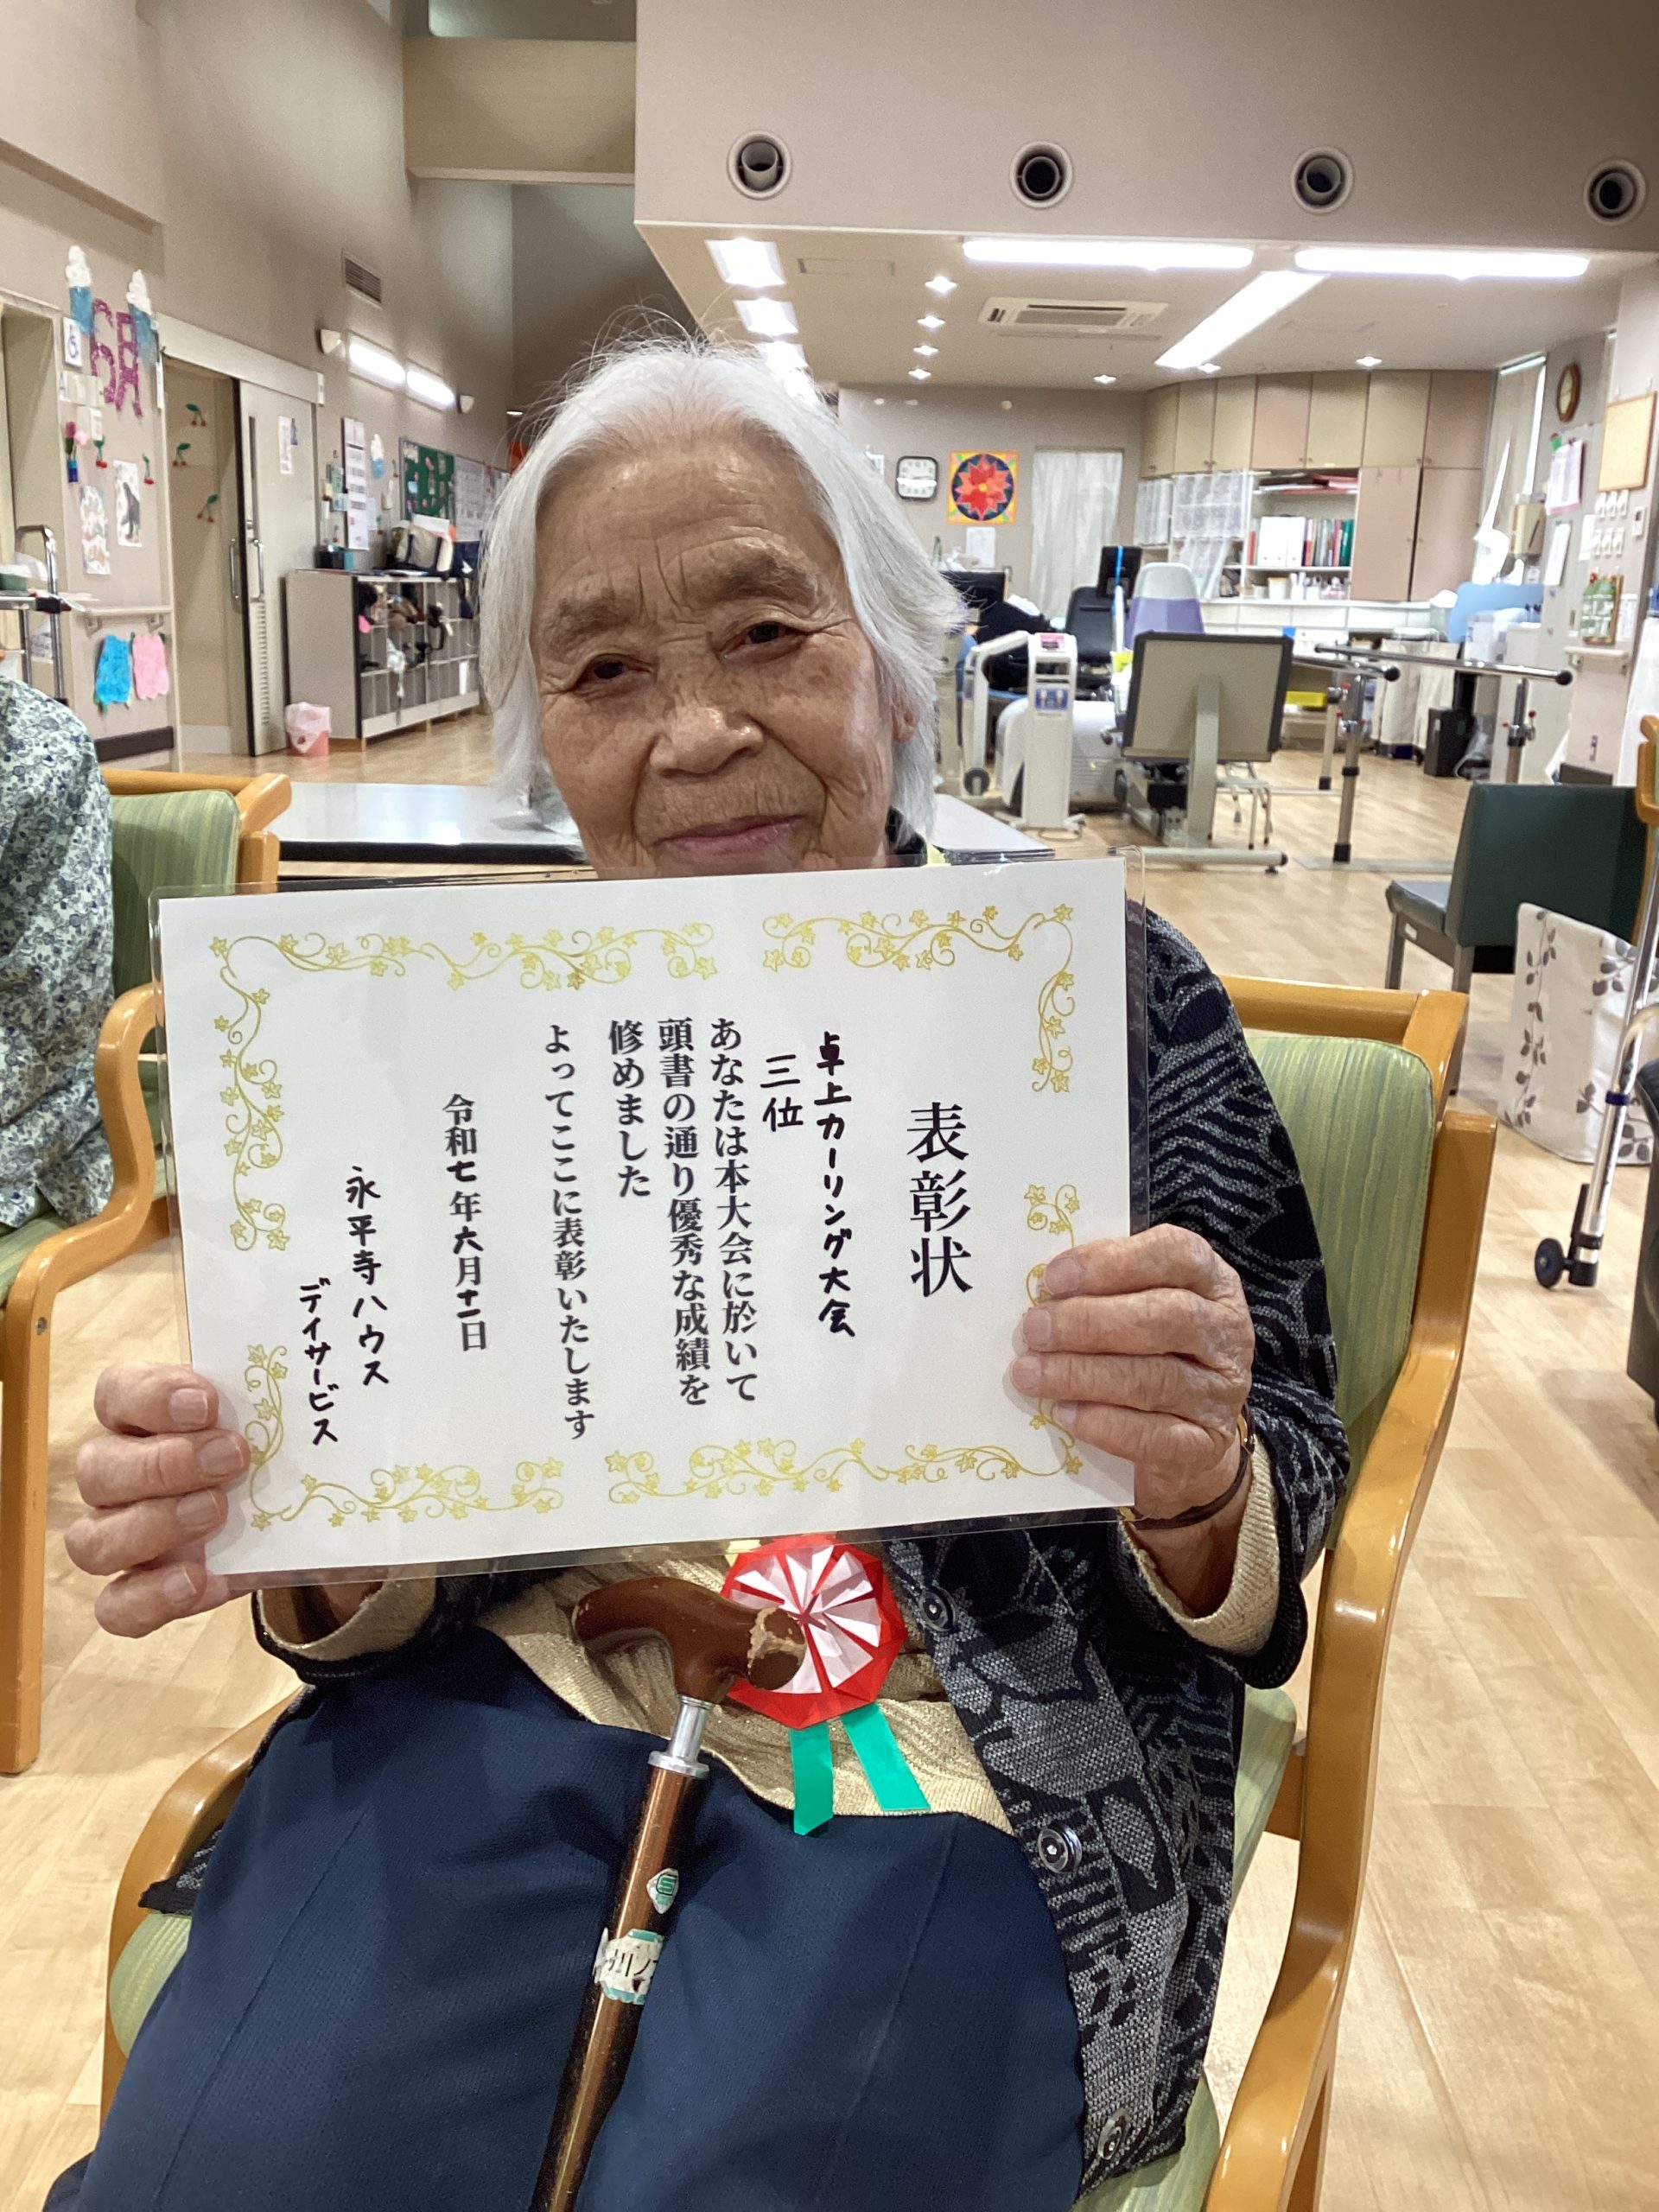 表彰状
卓上カーリング大会
三位
あなたは本大会に於いて
頭書の通り優秀な成績を
修めました
よってここに表彰いたします
令和七年六月十一日
永平寺ハウス
デイサービス
6月